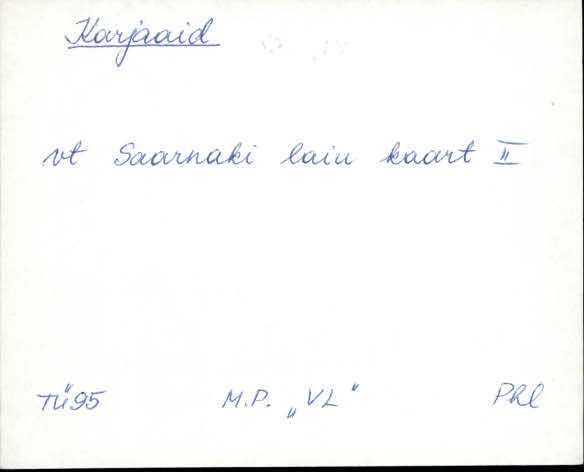 Karjaaid
vt Saarnaki laiu kaart II
TÜ95 M.P. „VL" PHl